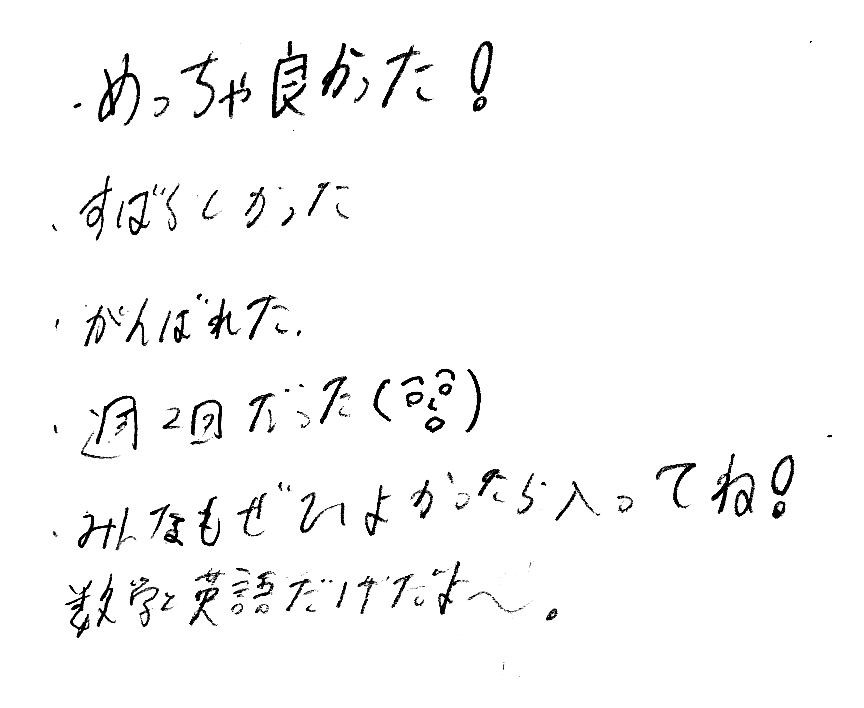 ・めっちゃ良かった!
・すばらしかった
・がんばれた.
・週2回だった(°°)
・みんなもぜひよかったら入ってね!
数学と英語だけだよ〜。